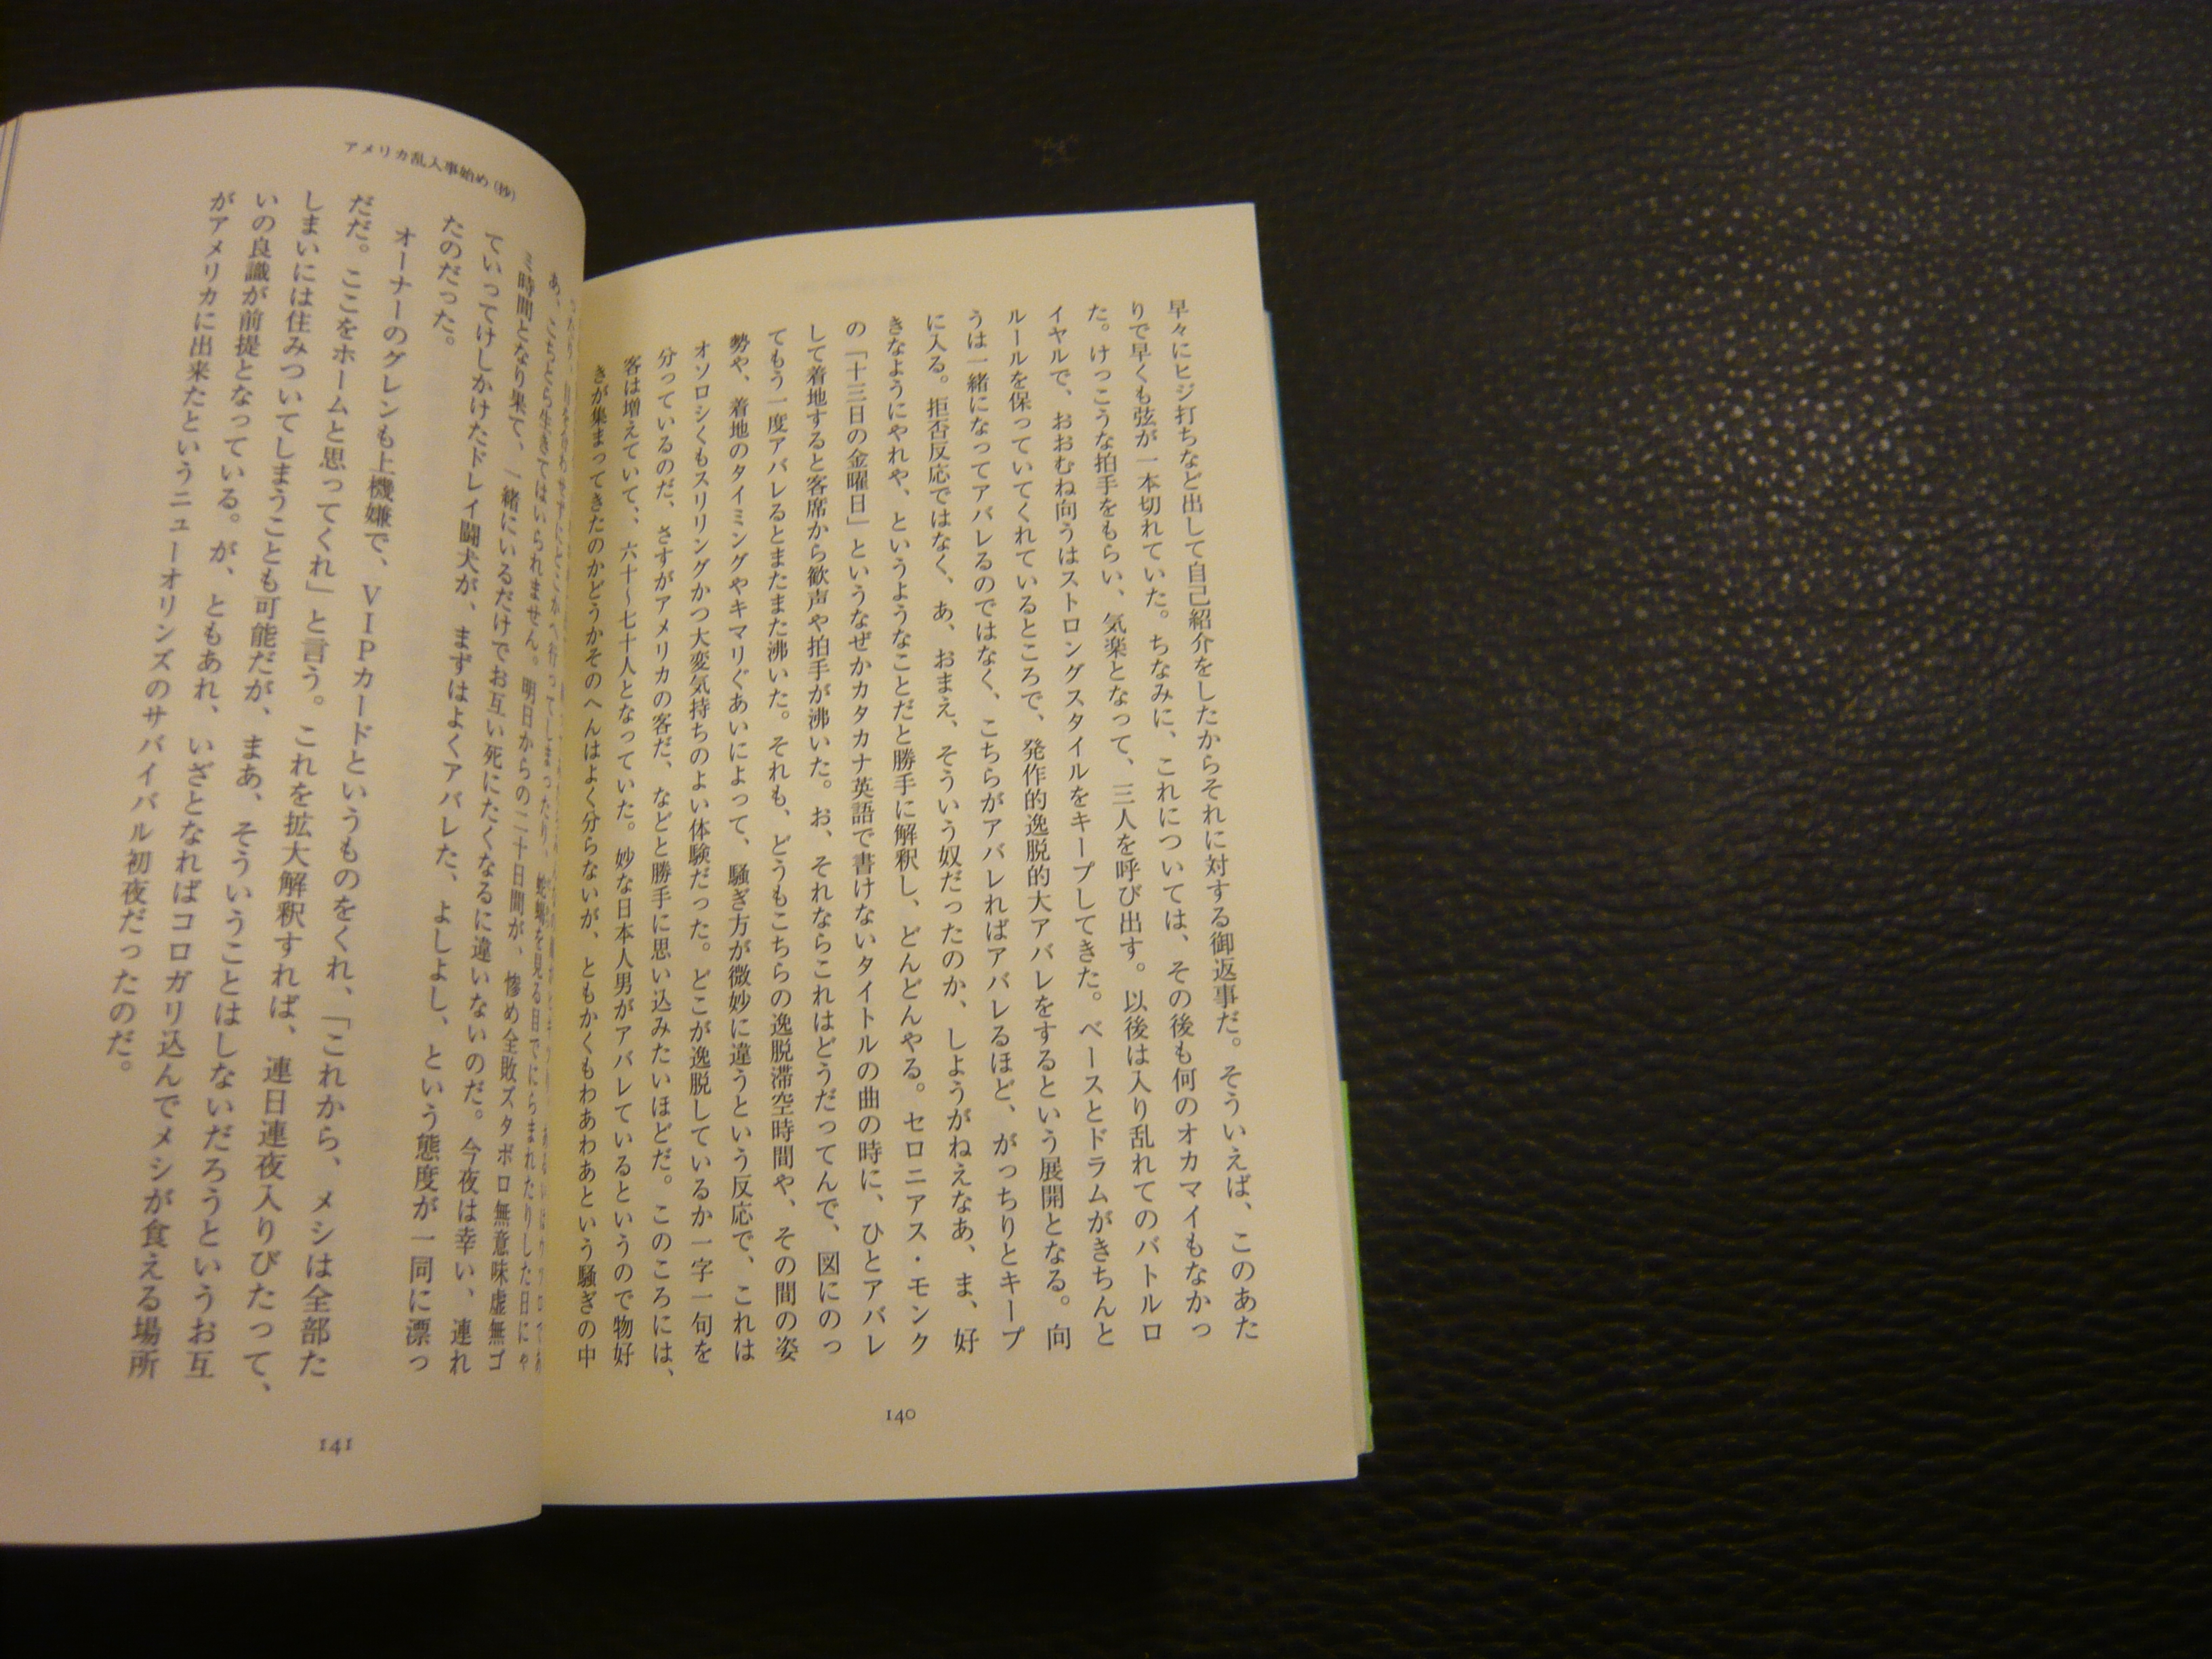 早々にヒジ打ちなど出して自己紹介をしたからそれに対する御返事だ。そういえば、このあた
りで早くも弦が一本切れていた。ちなみに、これについては、その後も何のオカマイもなかっ
た。けっこうな拍手をもらい、気楽となって、三人を呼び出す。以後は入り乱れてのバトルロ
イヤルで、おおむね向うはストロングスタイルをキープしてきた。ベースとドラムがきちんと
ルールを保っていてくれているところで、発作的逸脱的大アバレをするという展開となる。向
うは一緒になってアバレるのではなく、こちらがアバレればアバレるほど、がっちりとキープ
に入る。拒否反応ではなく、あ、おまえ、そういう奴だったのか、しようがねえなあ、ま、好
きなようにやれや、というようなことだと勝手に解釈し、どんどんやる。セロニアス・モンク
の「十三日の金曜日」というなぜかカタカナ英語で書けないタイトルの曲の時に、ひとアバレ
して着地すると客席から歓声や拍手が沸いた。お、それならこれはどうだってんで、図にのっ
てもう一度アバレるとまたまた沸いた。それも、どうもこちらの逸脱滞空時間や、その間の姿
勢や、着地のタイミングやキマリぐあいによって、騒ぎ方が微妙に違うという反応で、これは
オソロシくもスリリングかつ大変気持ちのよい体験だった。どこが逸脱しているか一字一句を
分っているのだ、さすがアメリカの客だ、などと勝手に思い込みたいほどだ。このころには、
客は増えていて、、六十〜七十人となっていた。妙な日本人男がアバレているというので物好
きが集まってきたのかどうかそのへんはよく分らないが、ともかくもわあわあという騒ぎの中
140
アメリカ乱入事始め(抄)
あ、こちとら生きてはいられません。明日からの二十日間が、
ミ時間となり果て、一緒にいるだけでお互い死にたくなるに違いないのだ。今夜は幸い、連れ
ていってけしかけたドレイ闘犬が、まずはよくアバレた、よしよし、という態度が一同に漂っ
たのだった。
オーナーのグレンも上機嫌で、VIPカードというものをくれ、「これから、メシは全部た
だだ。ここをホームと思ってくれ」と言う。これを拡大解釈すれば、連日連夜入りびたって、
しまいには住みついてしまうことも可能だが、まあ、そういうことはしないだろうというお互
いの良識が前提となっている。が、ともあれ、いざとなればコロガリ込んでメシが食える場所
がアメリカに出来たというニューオリンズのサバイバル初夜だったのだ。
141